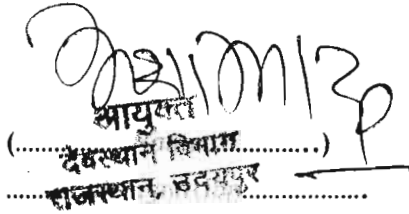 आयुक्त
(...देवस्थान विभाग...)
राजस्थान, उदयपुर